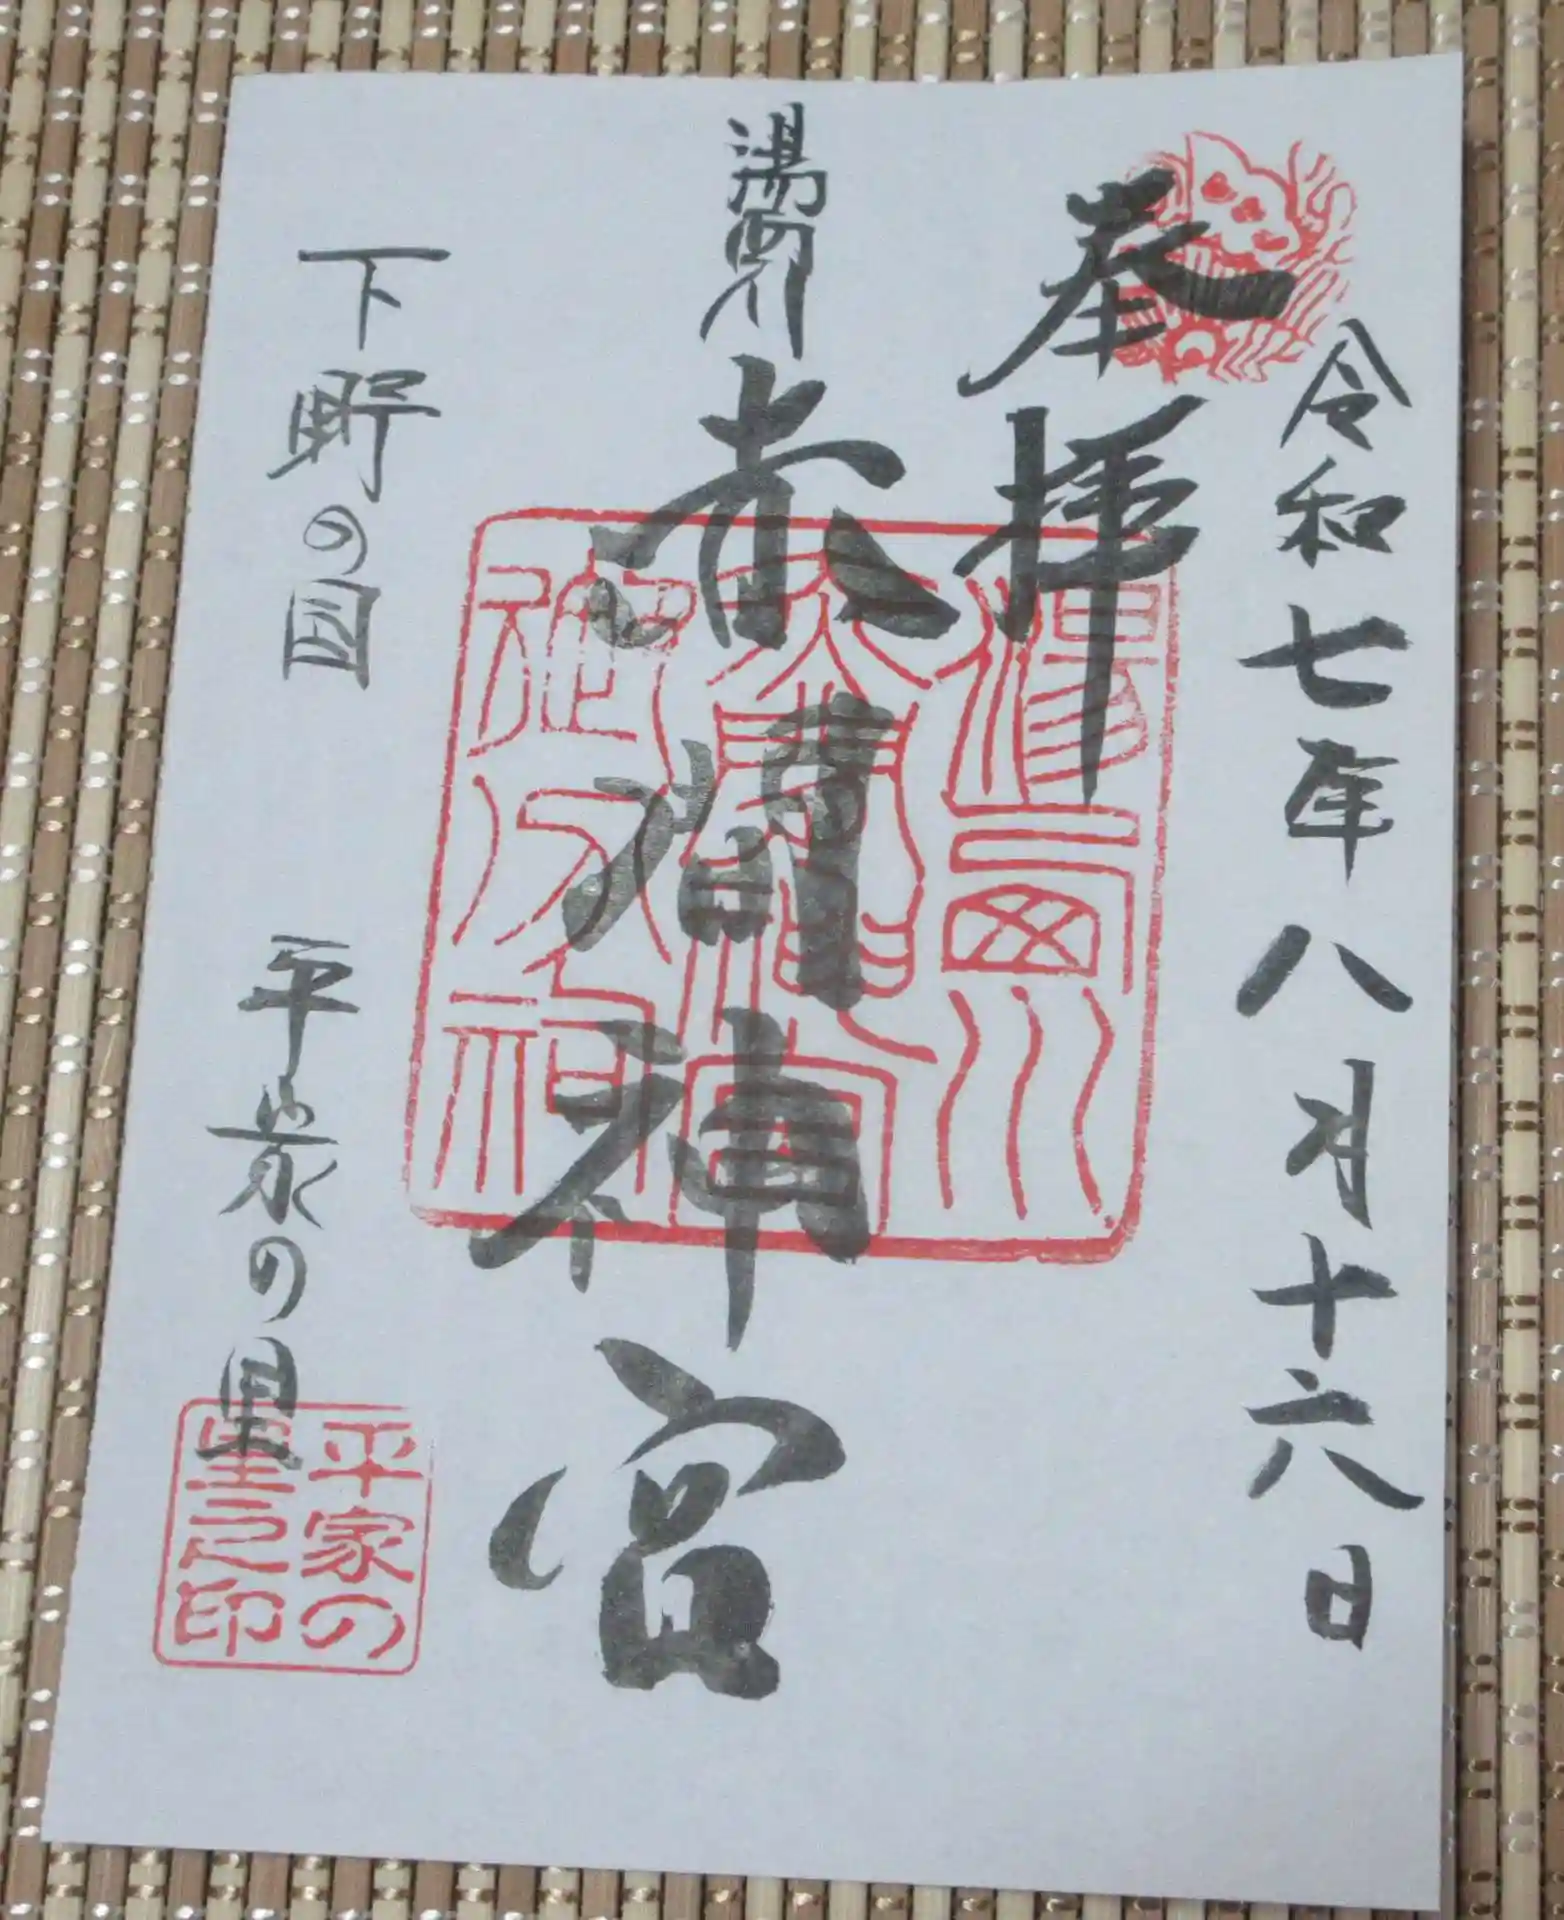 令和七年八月十六日
奉拝
湯西川
赤間神宮
湯西川
赤間神宮
御分祠
下野の国
平家の里
平家の
里之印